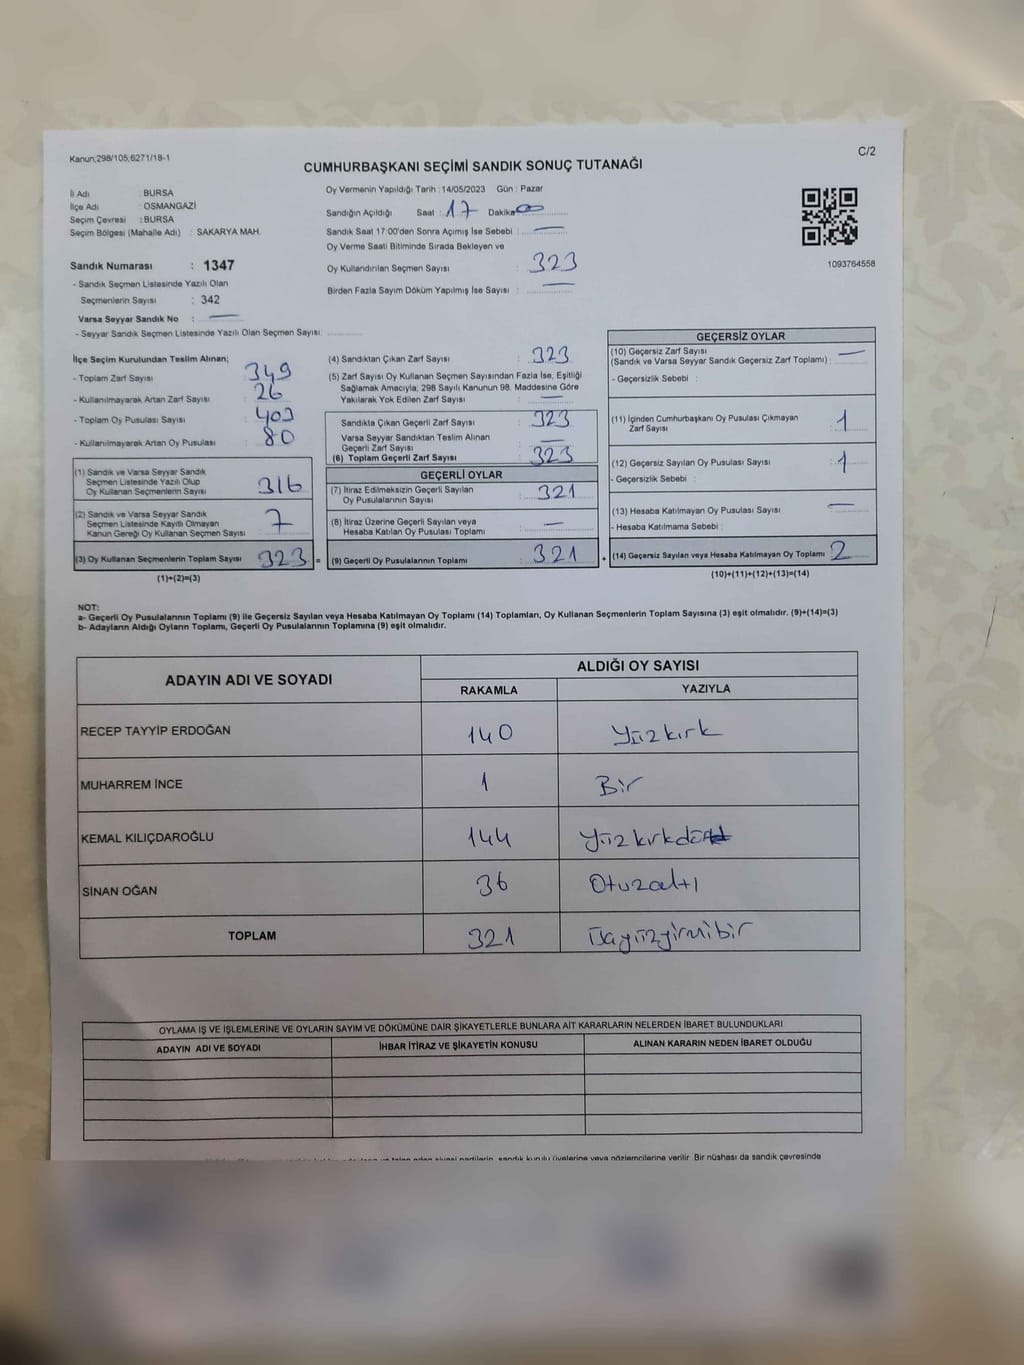 Kanun;298/105,6271/18-1
C/2
CUMHURBAŞKANI SEÇİMİ SANDIK SONUÇ TUTANAĞI
İl Adı : BURSA
İlçe Adı : OSMANGAZİ
Seçim Çevresi : BURSA
Seçim Bölgesi (Mahalle Adı) : SAKARYA MAH.
Sandık Numarası : 1347
- Sandık Seçmen Listesinde Yazılı Olan
Seçmenlerin Sayısı : 342
Varsa Seyyar Sandık No : —
- Seyyar Sandık Seçmen Listesinde Yazılı Olan Seçmen Sayısı:
Oy Vermenin Yapıldığı Tarih : 14/05/2023 Gün : Pazar
Sandığın Açıldığı Saat : 17 Dakika 00
Sandık Saat 17:00'den Sonra Açımış İse Sebebi : —
Oy Verme Saati Bitiminde Sırada Bekleyen ve
Oy Kullandırılan Seçmen Sayısı : 323
Birden Fazla Sayım Döküm Yapılmış İse Sayısı : —
1093764558
İlçe Seçim Kurulundan Teslim Alınan;
- Toplam Zarf Sayısı : 349
- Kullanılmayarak Artan Zarf Sayısı : 26
- Toplam Oy Pusulası Sayısı : 403
- Kullanılmayarak Artan Oy Pusulası : 80
(1) Sandık ve Varsa Seyyar Sandık
Seçmen Listesinde Yazılı Olup
Oy Kullanan Seçmenlerin Sayısı 316
(2) Sandık ve Varsa Seyyar Sandık
Seçmen Listesinde Kayıtlı Olmayan
Kanun Gereği Oy Kullanan Seçmen Sayısı 7
(3) Oy Kullanan Seçmenlerin Toplam Sayısı 323 =
(1)+(2)=(3)
(4) Sandıktan Çıkan Zarf Sayısı : 323
(5) Zarf Sayısı Oy Kullanan Seçmen Sayısından Fazla İse, Eşitliği
Sağlamak Amacıyla; 298 Sayılı Kanunun 98. Maddesine Göre
Yakılarak Yok Edilen Zarf Sayısı : —
Sandıkta Çıkan Geçerli Zarf Sayısı : 323
Varsa Seyyar Sandıktan Teslim Alınan
Geçerli Zarf Sayısı : —
(6) Toplam Geçerli Zarf Sayısı : 323
GEÇERLİ OYLAR
(7) İtiraz Edilmeksizin Geçerli Sayılan
Oy Pusulalarının Sayısı : 321
(8) İtiraz Üzerine Geçerli Sayılan veya
Hesaba Katılan Oy Pusulası Toplamı : —
(9) Geçerli Oy Pusulalarının Toplamı : 321 +
GEÇERSİZ OYLAR
(10) Geçersiz Zarf Sayısı
(Sandık ve Varsa Seyyar Sandık Geçersiz Zarf Toplamı) : —
- Geçersizlik Sebebi :
(11) İçinden Cumhurbaşkanı Oy Pusulası Çıkmayan
Zarf Sayısı : 1
(12) Geçersiz Sayılan Oy Pusulası Sayısı : 1
- Geçersizlik Sebebi :
(13) Hesaba Katılmayan Oy Pusulası Sayısı : —
- Hesaba Katılmama Sebebi :
(14) Geçersiz Sayılan veya Hesaba Katılmayan Oy Toplamı : 2
(10)+(11)+(12)+(13)=(14)
NOT:
a- Geçerli Oy Pusulalarının Toplamı (9) ile Geçersiz Sayılan veya Hesaba Katılmayan Oy Toplamı (14) Toplamları, Oy Kullanan Seçmenlerin Toplam Sayısına (3) eşit olmalıdır. (9)+(14)=(3)
b- Adayların Aldığı Oyların Toplamı, Geçerli Oy Pusulalarının Toplamına (9) eşit olmalıdır.
ADAYIN ADI VE SOYADI ALDIĞI OY SAYISI
RAKAMLA YAZIYLA
RECEP TAYYİP ERDOĞAN 140 Yüzkırk
MUHARREM İNCE 1 Bir
KEMAL KILIÇDAROĞLU 144 Yüzkırkdört
SİNAN OĞAN 36 Otuzaltı
TOPLAM 321 üçyüzyirmibir
OYLAMA İŞ VE İŞLEMLERİNE VE OYLARIN SAYIM VE DÖKÜMÜNE DAİR ŞİKAYETLERLE BUNLARA AİT KARARLARIN NELERDEN İBARET BULUNDUKLARI
ADAYIN ADI VE SOYADI İHBAR İTİRAZ VE ŞİKAYETİN KONUSU ALINAN KARARIN NEDEN İBARET OLDUĞU
sandık kurulu üyelerine veya gözlemcilerine verilir. Bir nüshası da sandık çevresinde